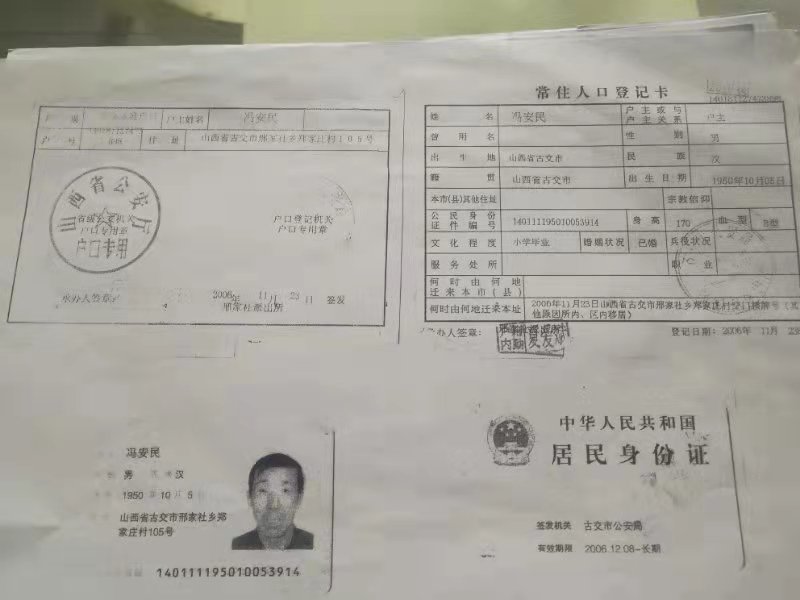 常住人口登记卡
户主姓名 冯安民
户 号 住 址 山西省古交市邢家社乡郑家庄村105号
山西省公安厅
省级公安机关
户口专用章
户口专用
户口登记机关
户口专用章
承办人签章
2006年 11月 23日 签发
邢家社派出所
姓 名 冯安民 户主或与户主关系 户主
曾 用 名 性 别 男
出 生 地 山西省古交市 民 族 汉
籍 贯 山西省古交市 出生日期 1950年10月05日
本市(县)其他住址 宗教信仰
公民身份证件编号 140111195010053914 身 高 170 血 型 B型
文化程度 小学毕业 婚姻状况 已婚 兵役状况
服务处所 职 业
何时由何地迁来本市(县)
何时由何地迁来本址 2006年11月23日山西省古交市邢家社乡郑家庄村
他原因所内、区内移居)
办人签章: 登记日期: 2006年 11月 23
冯安民
男 汉
1950 年 10 月 5
山西省古交市邢家社乡郑
家庄村105号
140111195010053914
中华人民共和国
居民身份证
签发机关 古交市公安局
有效期限 2006.12.08-长期